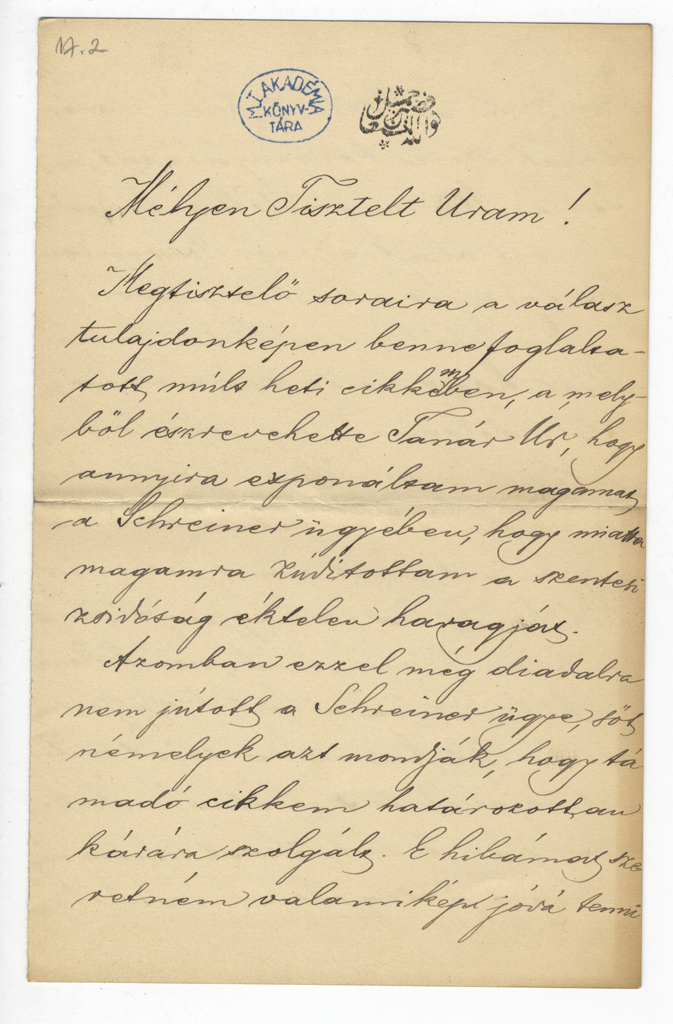 17.2
M.T. AKADÉMIA
KÖNYV-
TÁRA
Mélyen Tisztelt Uram!
Megtisztelő soraira a válasz
tulajdonképen bennefoglalta-
tott múlt heti cikkemben, a mely-
ből észrevehette Tanár Ur, hogy
annyira exponáltam magamat
a Schreiner ügyében, hogy miatta
magamra zúdítottam a szentesi
zsidóság éktelen haragját.
Azomban ezzel még diadalra
nem jútott a Schreiner ügye, sőt
némelyek azt mondják, hogy tá-
madó cikkem határozottan
kárára szolgált. E hibámat sze-
retném valamiképp jóvá tenni